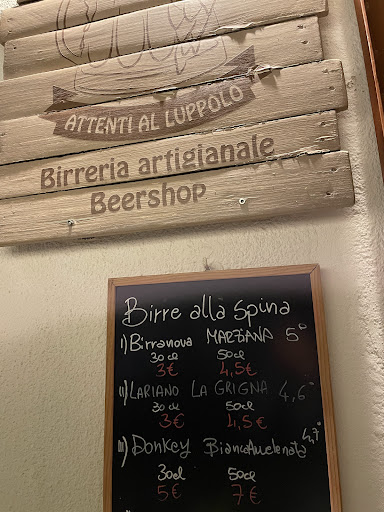 ATTENTI AL LUPPOLO
Birreria artigianale
Beershop
Birre alla spina
I) Birranova MARZIANA 5°
30cl 50cl
3€ 4,5€
II) LARIANO LA GRIGNA 4,6°
30cl 50cl
3€ 4,5€
III) Donkey BiancaAvvelenata 4,7°
30cl 50cl
5€ 7€